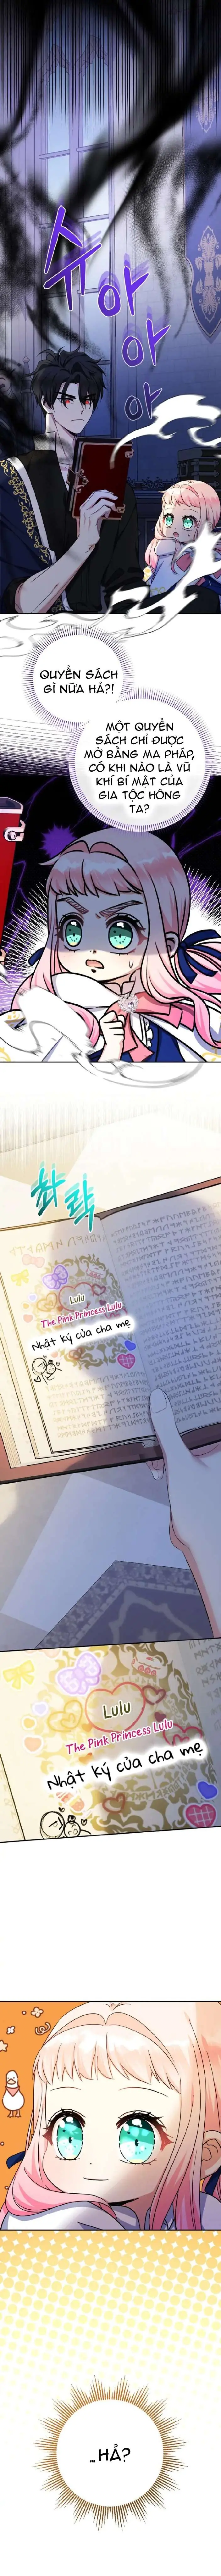 슈
아
아
아
QUYỂN SÁCH
GÌ NỮA HẢ?!
MỘT QUYỂN
SÁCH CHỈ ĐƯỢC
MỞ BẰNG MA PHÁP,
CÓ KHI NÀO LÀ VŨ
KHÍ BÍ MẬT CỦA
GIA TỘC HÔNG
TA?
촤락
Lulu
The Pink Princess Lulu
Nhật ký của cha mẹ
Lulu
The Pink Princess Lulu
Nhật ký của cha mẹ
...HẢ?